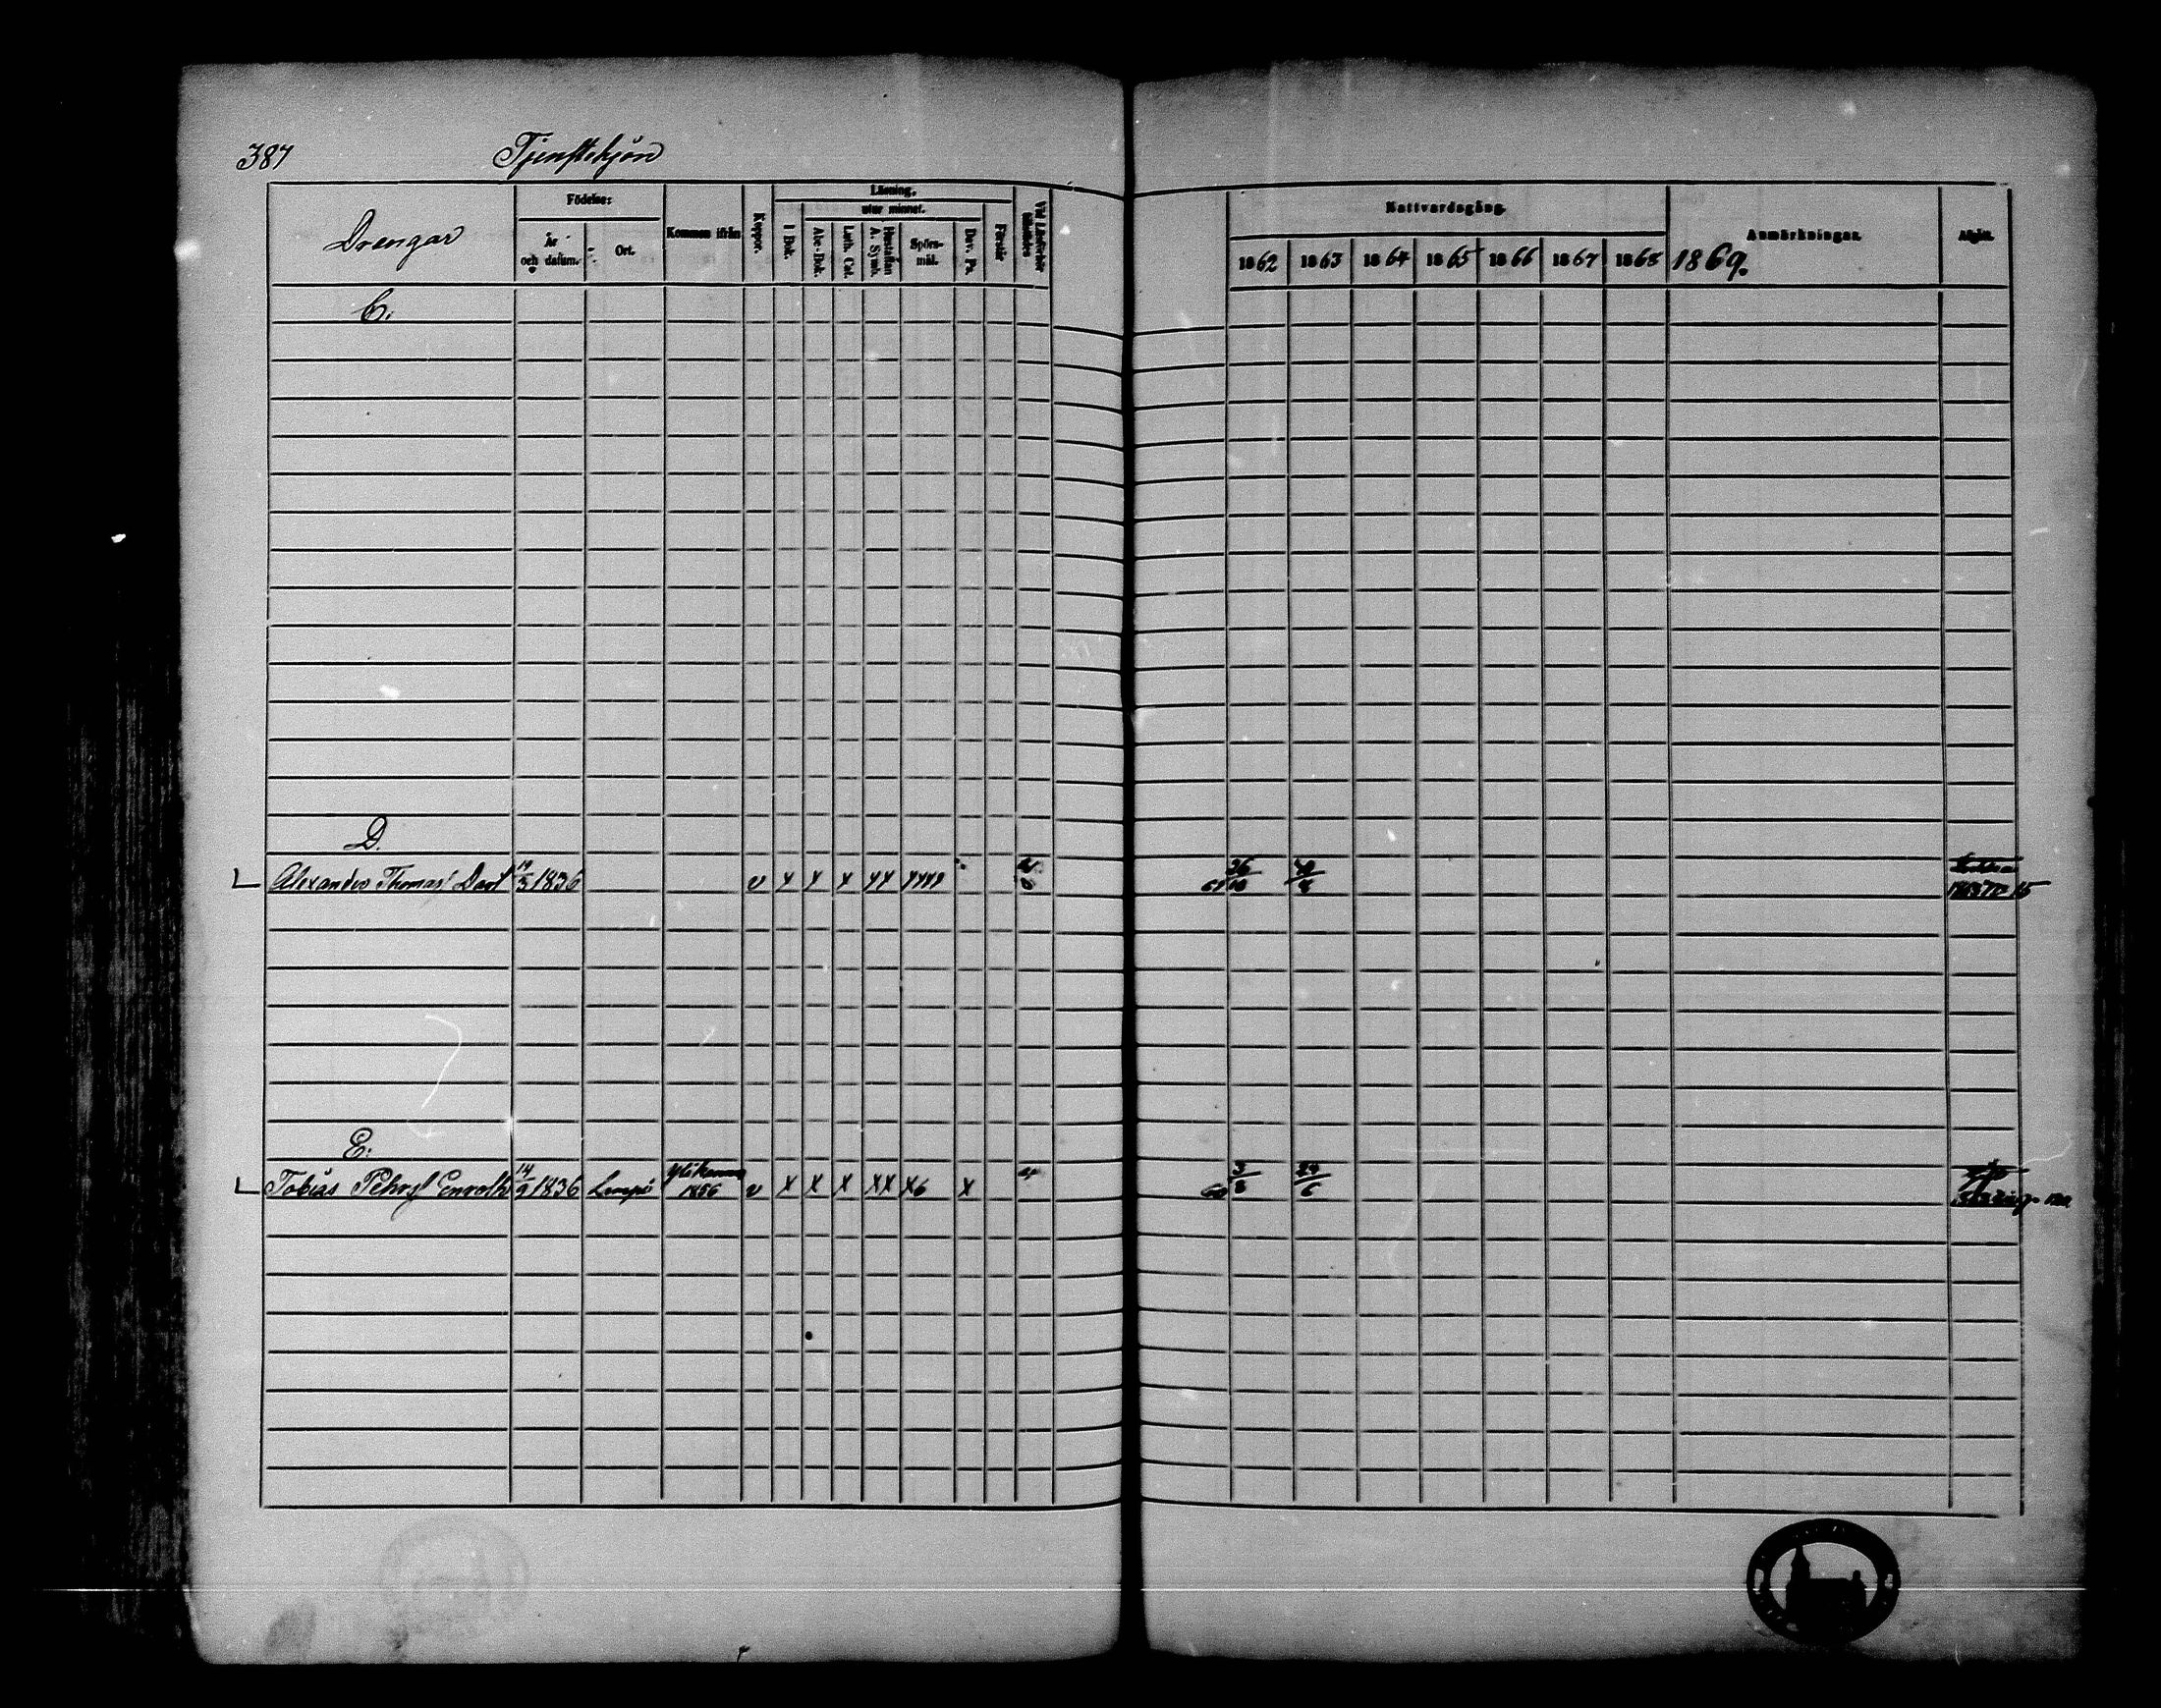 387 Tjenstehjon
Drengar
Födelse:
År och datum.
Ort.
Kommen ifrån
Koppor.
Läsning.
utur minnet.
I Bok.
Abc-Bok.
Luth. Cat.
Hustaflan A. Symb.
Spörsmål.
Dav. Ps.
Förstår
Vid Läsförhör
Nattvardsgång.
1862 1863 1864 1865 1866 1867 1868 1869.
Anmärkningar.
Afgått.
C.
D.
Alexander Thomas 19/3 1836 v
26/10
E.
Tobias Pehrs Enroth 14/9 1836 1856 v X X X XX X6 X
60 3/8 24/6